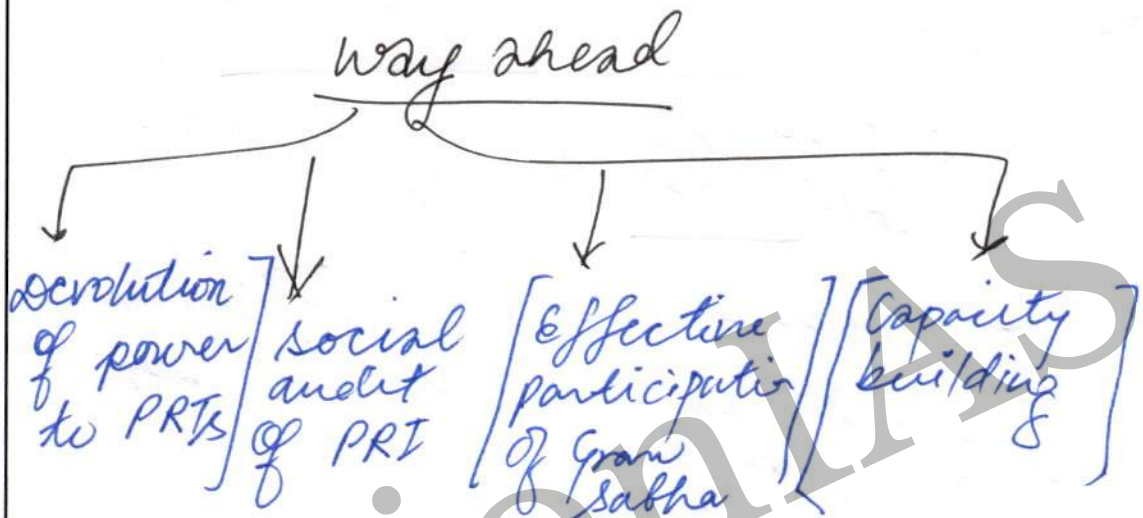 way ahead
Devolution
of power
to PRIs
social
audit
of PRI
Effective
participation
of Gram
sabha
Capacity
building